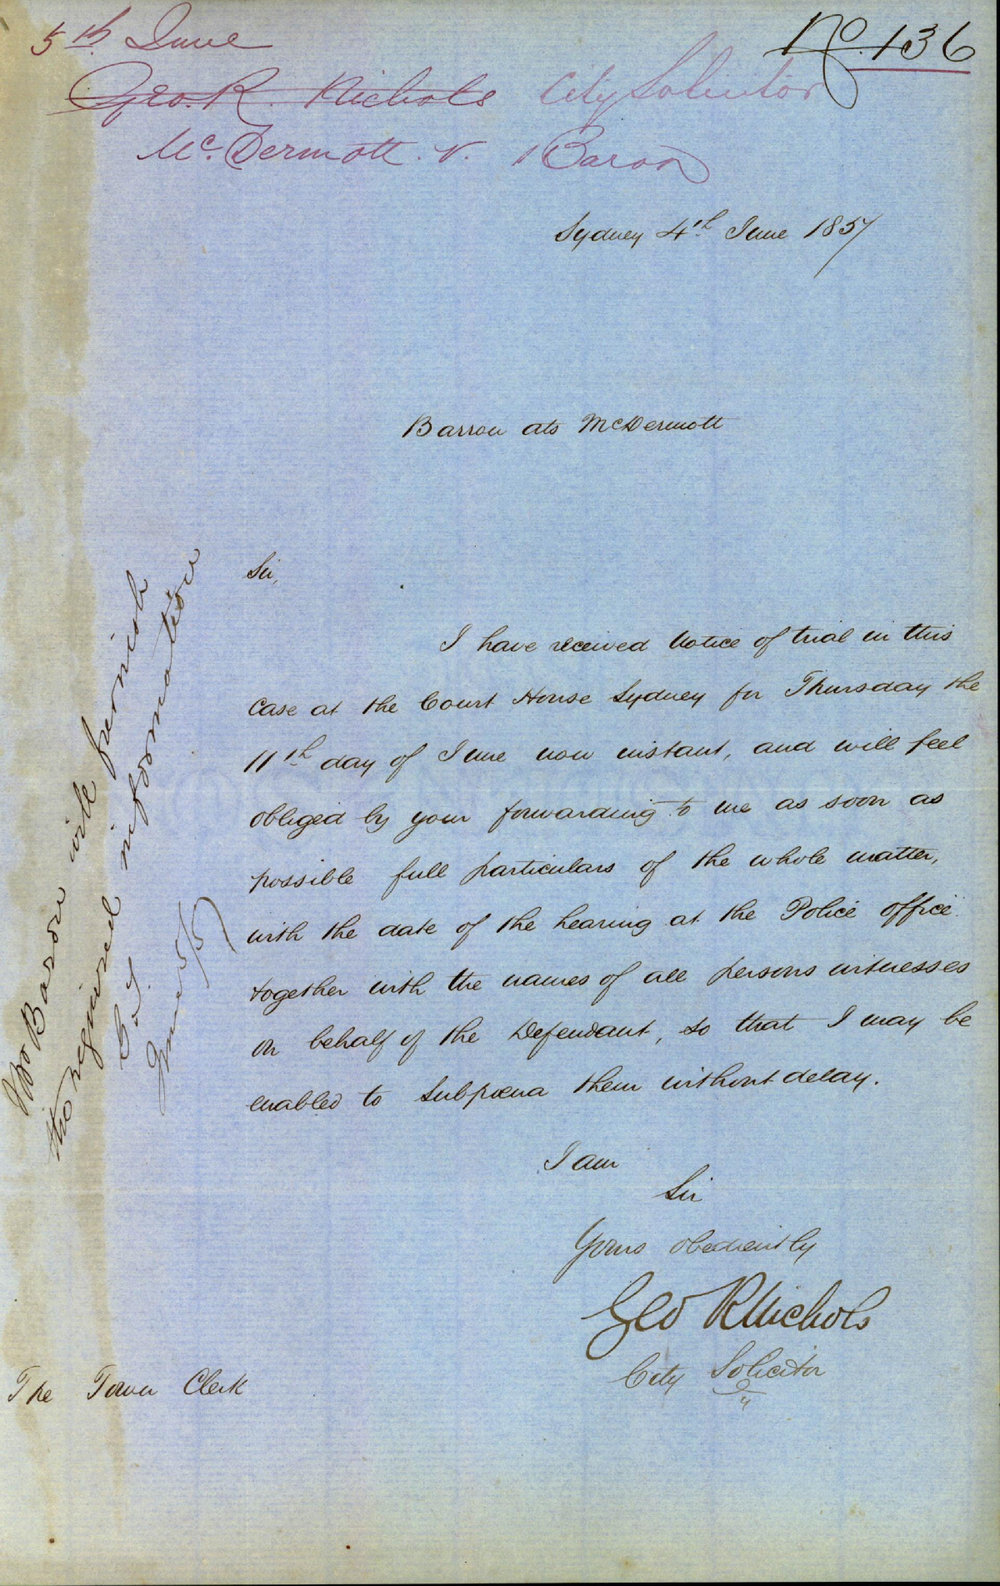 5th June
No. 136
Geo. R. Nichols City Solicitor
McDermott. v. Baron
Sydney 4th June 1857
Barron ats McDermott
Sir,
I have received Notice of trial in this
case at the Court House Sydney for Thursday the
11th day of June now instant, and will feel
obliged by your forwarding to me as soon as
possible full particulars of the whole matter,
with the date of the hearing at the Police office
together with the names of all persons witnesses
on behalf of the Defendant, so that I may be
enabled to Subpœna them without delay.
I am
Sir
Yours obediently
Geo R Nichols
City Solicitor
The Town Clerk
Mr Baron will furnish
the required information
June 5/57